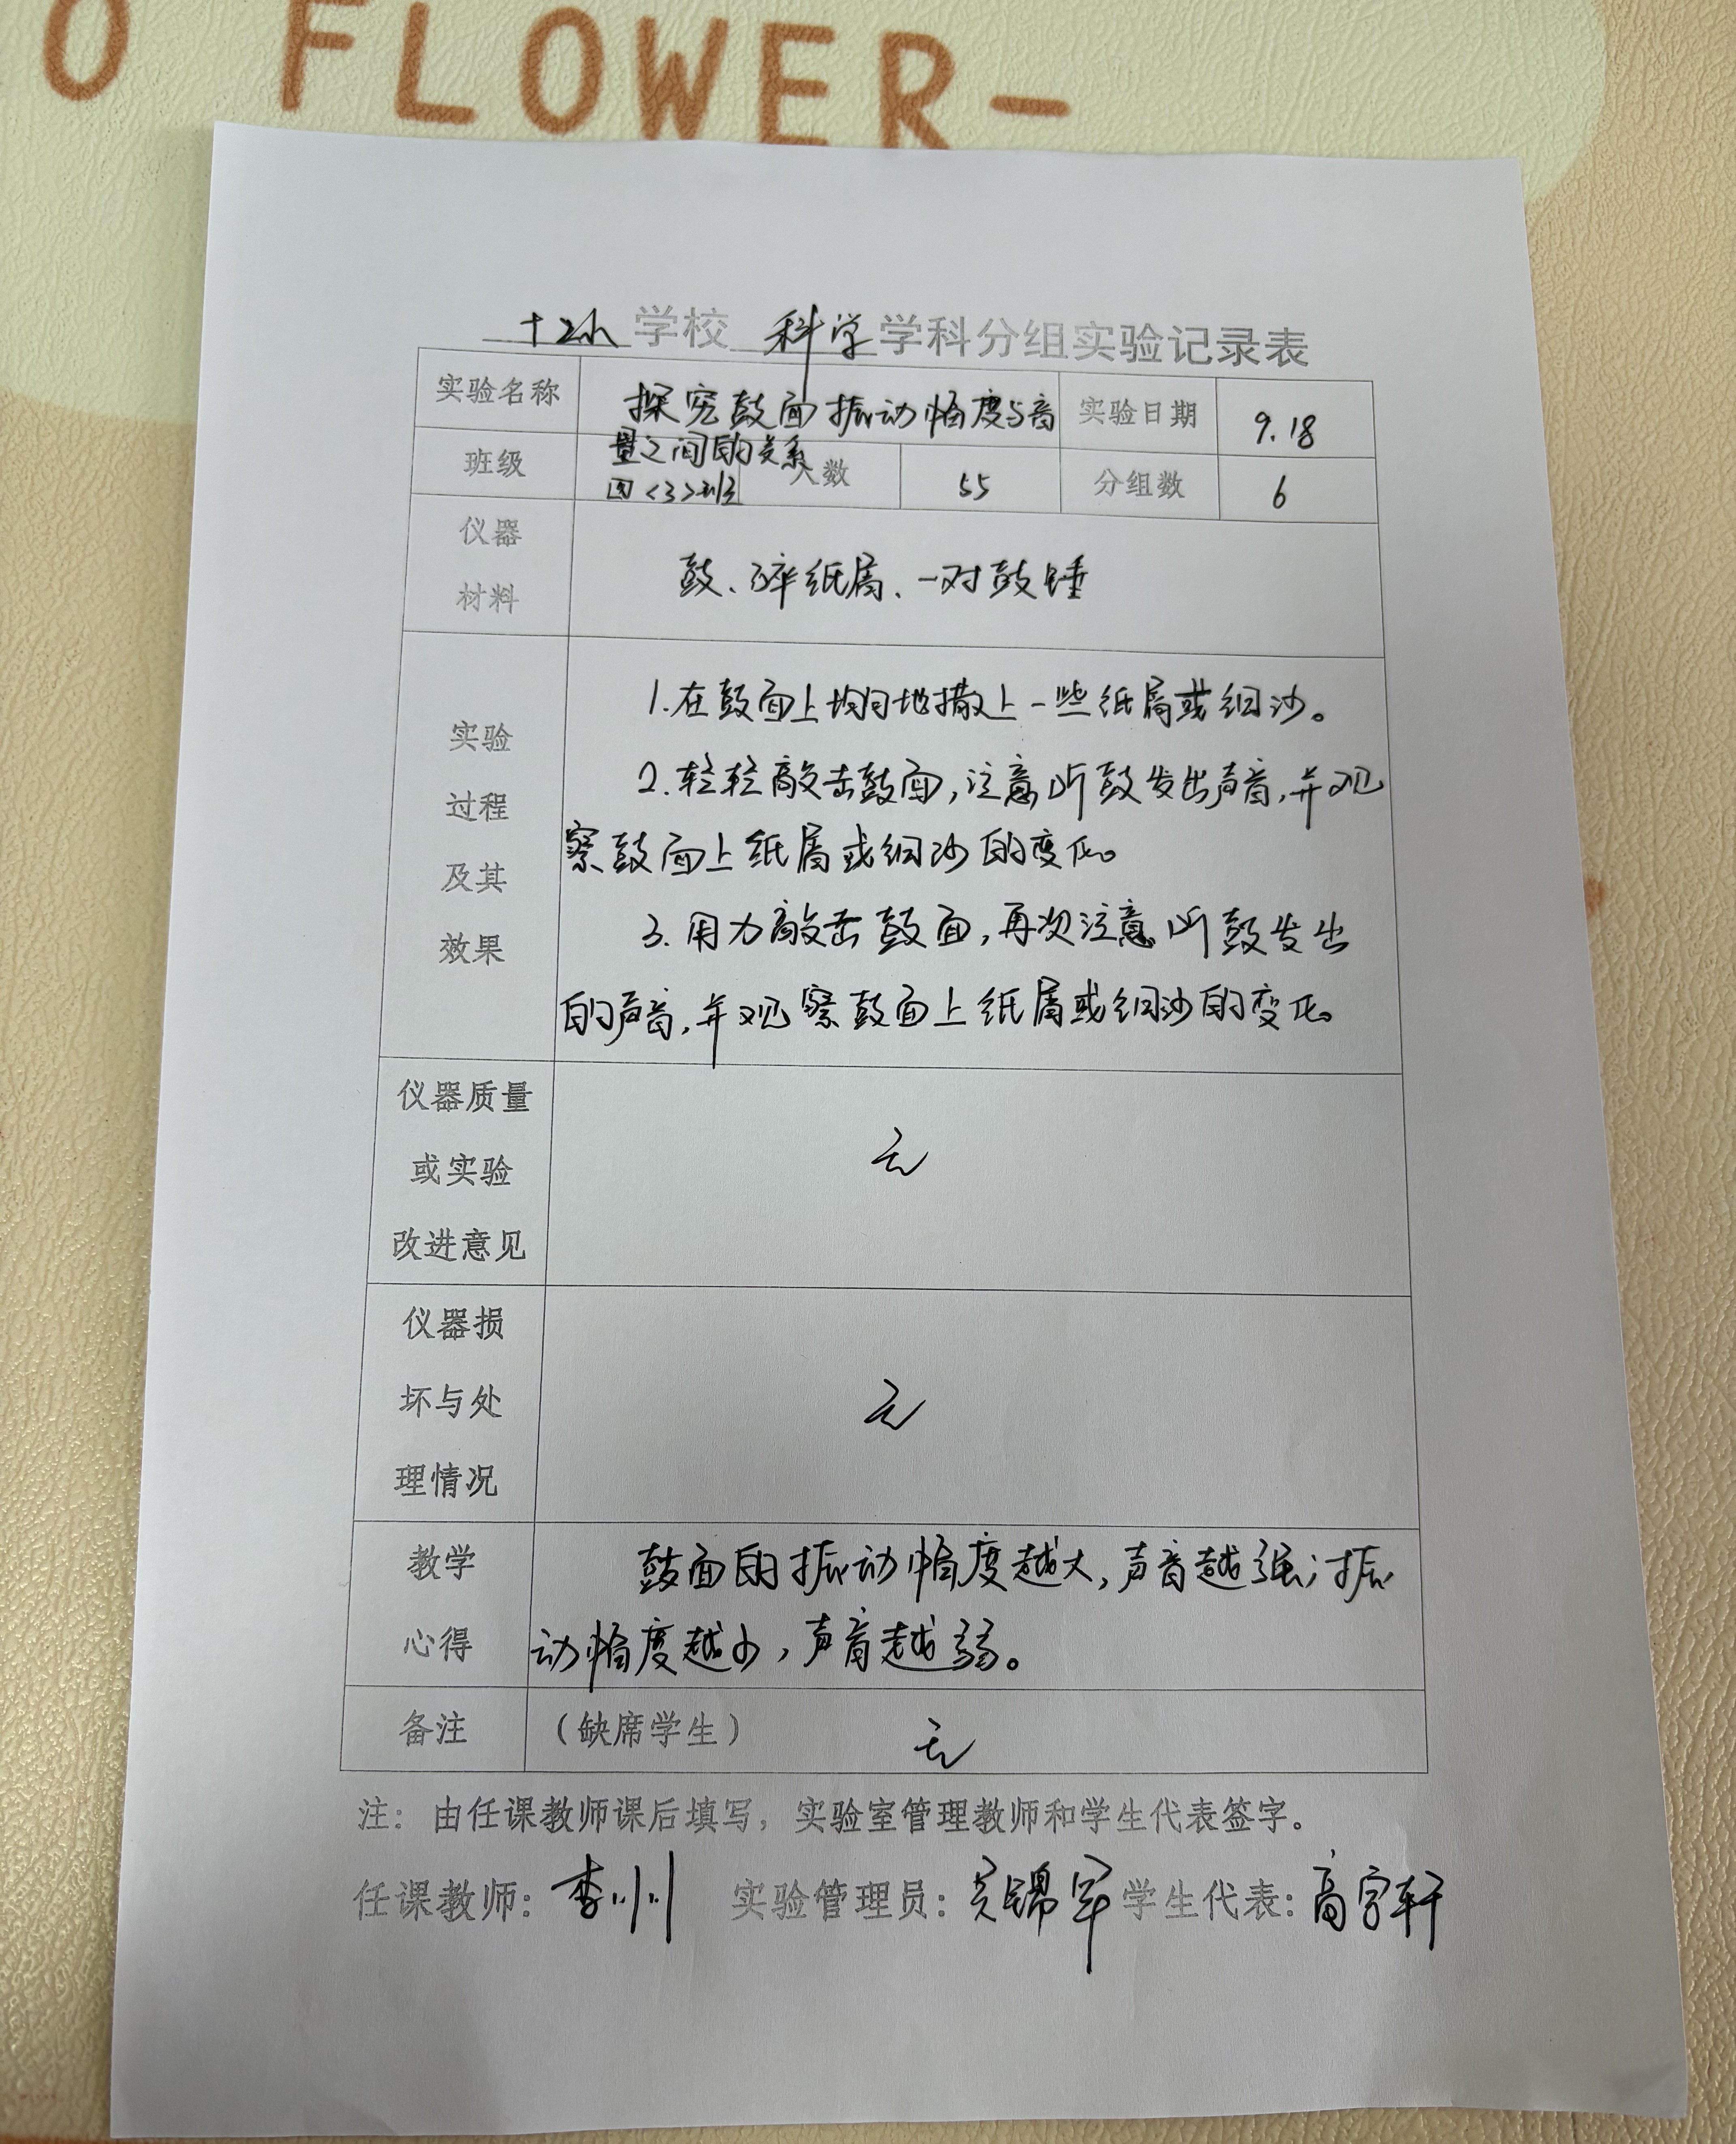 O FLOWER-
十二小学校 科学学科分组实验记录表
实验名称 探究鼓面振动幅度与音量之间的关系 实验日期 9.18
班级 四<3>班 人数 55 分组数 6
仪器
材料
鼓、碎纸屑、一对鼓锤
实验
过程
及其
效果
1.在鼓面上均匀地撒上一些纸屑或细沙。
2.轻轻敲击鼓面,注意听鼓发出声音,并观
察鼓面上纸屑或细沙的变化。
3.用力敲击鼓面,再次注意听鼓发出
的声音,并观察鼓面上纸屑或细沙的变化。
仪器质量
或实验
改进意见
无
仪器损
坏与处
理情况
无
教学
心得
鼓面的振动幅度越大,声音越强;振
动幅度越小,声音越弱。
备注 (缺席学生) 无
注:由任课教师课后填写,实验室管理教师和学生代表签字。
任课教师:李川 实验管理员:吴锦军 学生代表:高宇轩